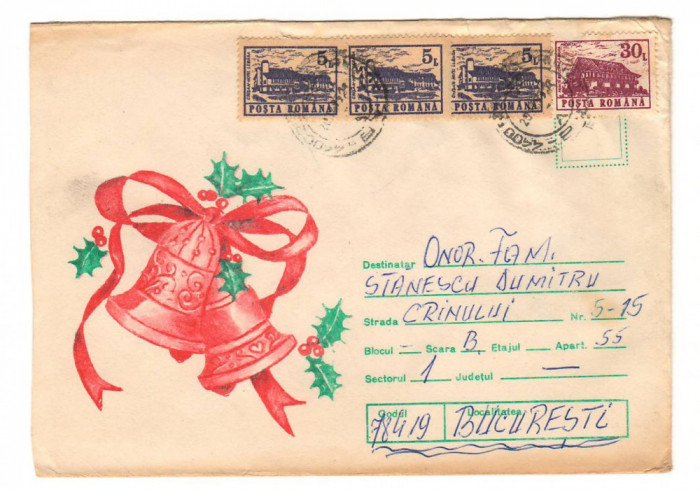 5L 5L 5L 30L
POSTA ROMANA POSTA ROMANA POSTA ROMANA POSTA ROMANA
Destinatar ONOR. FAM.
STANESCU DUMITRU
Strada CRINULUI Nr. 5-15
Blocul – Scara B, Etajul Apart. 55
Sectorul 1 Județul —
Codul Localitatea
78419 BUCUREȘTI